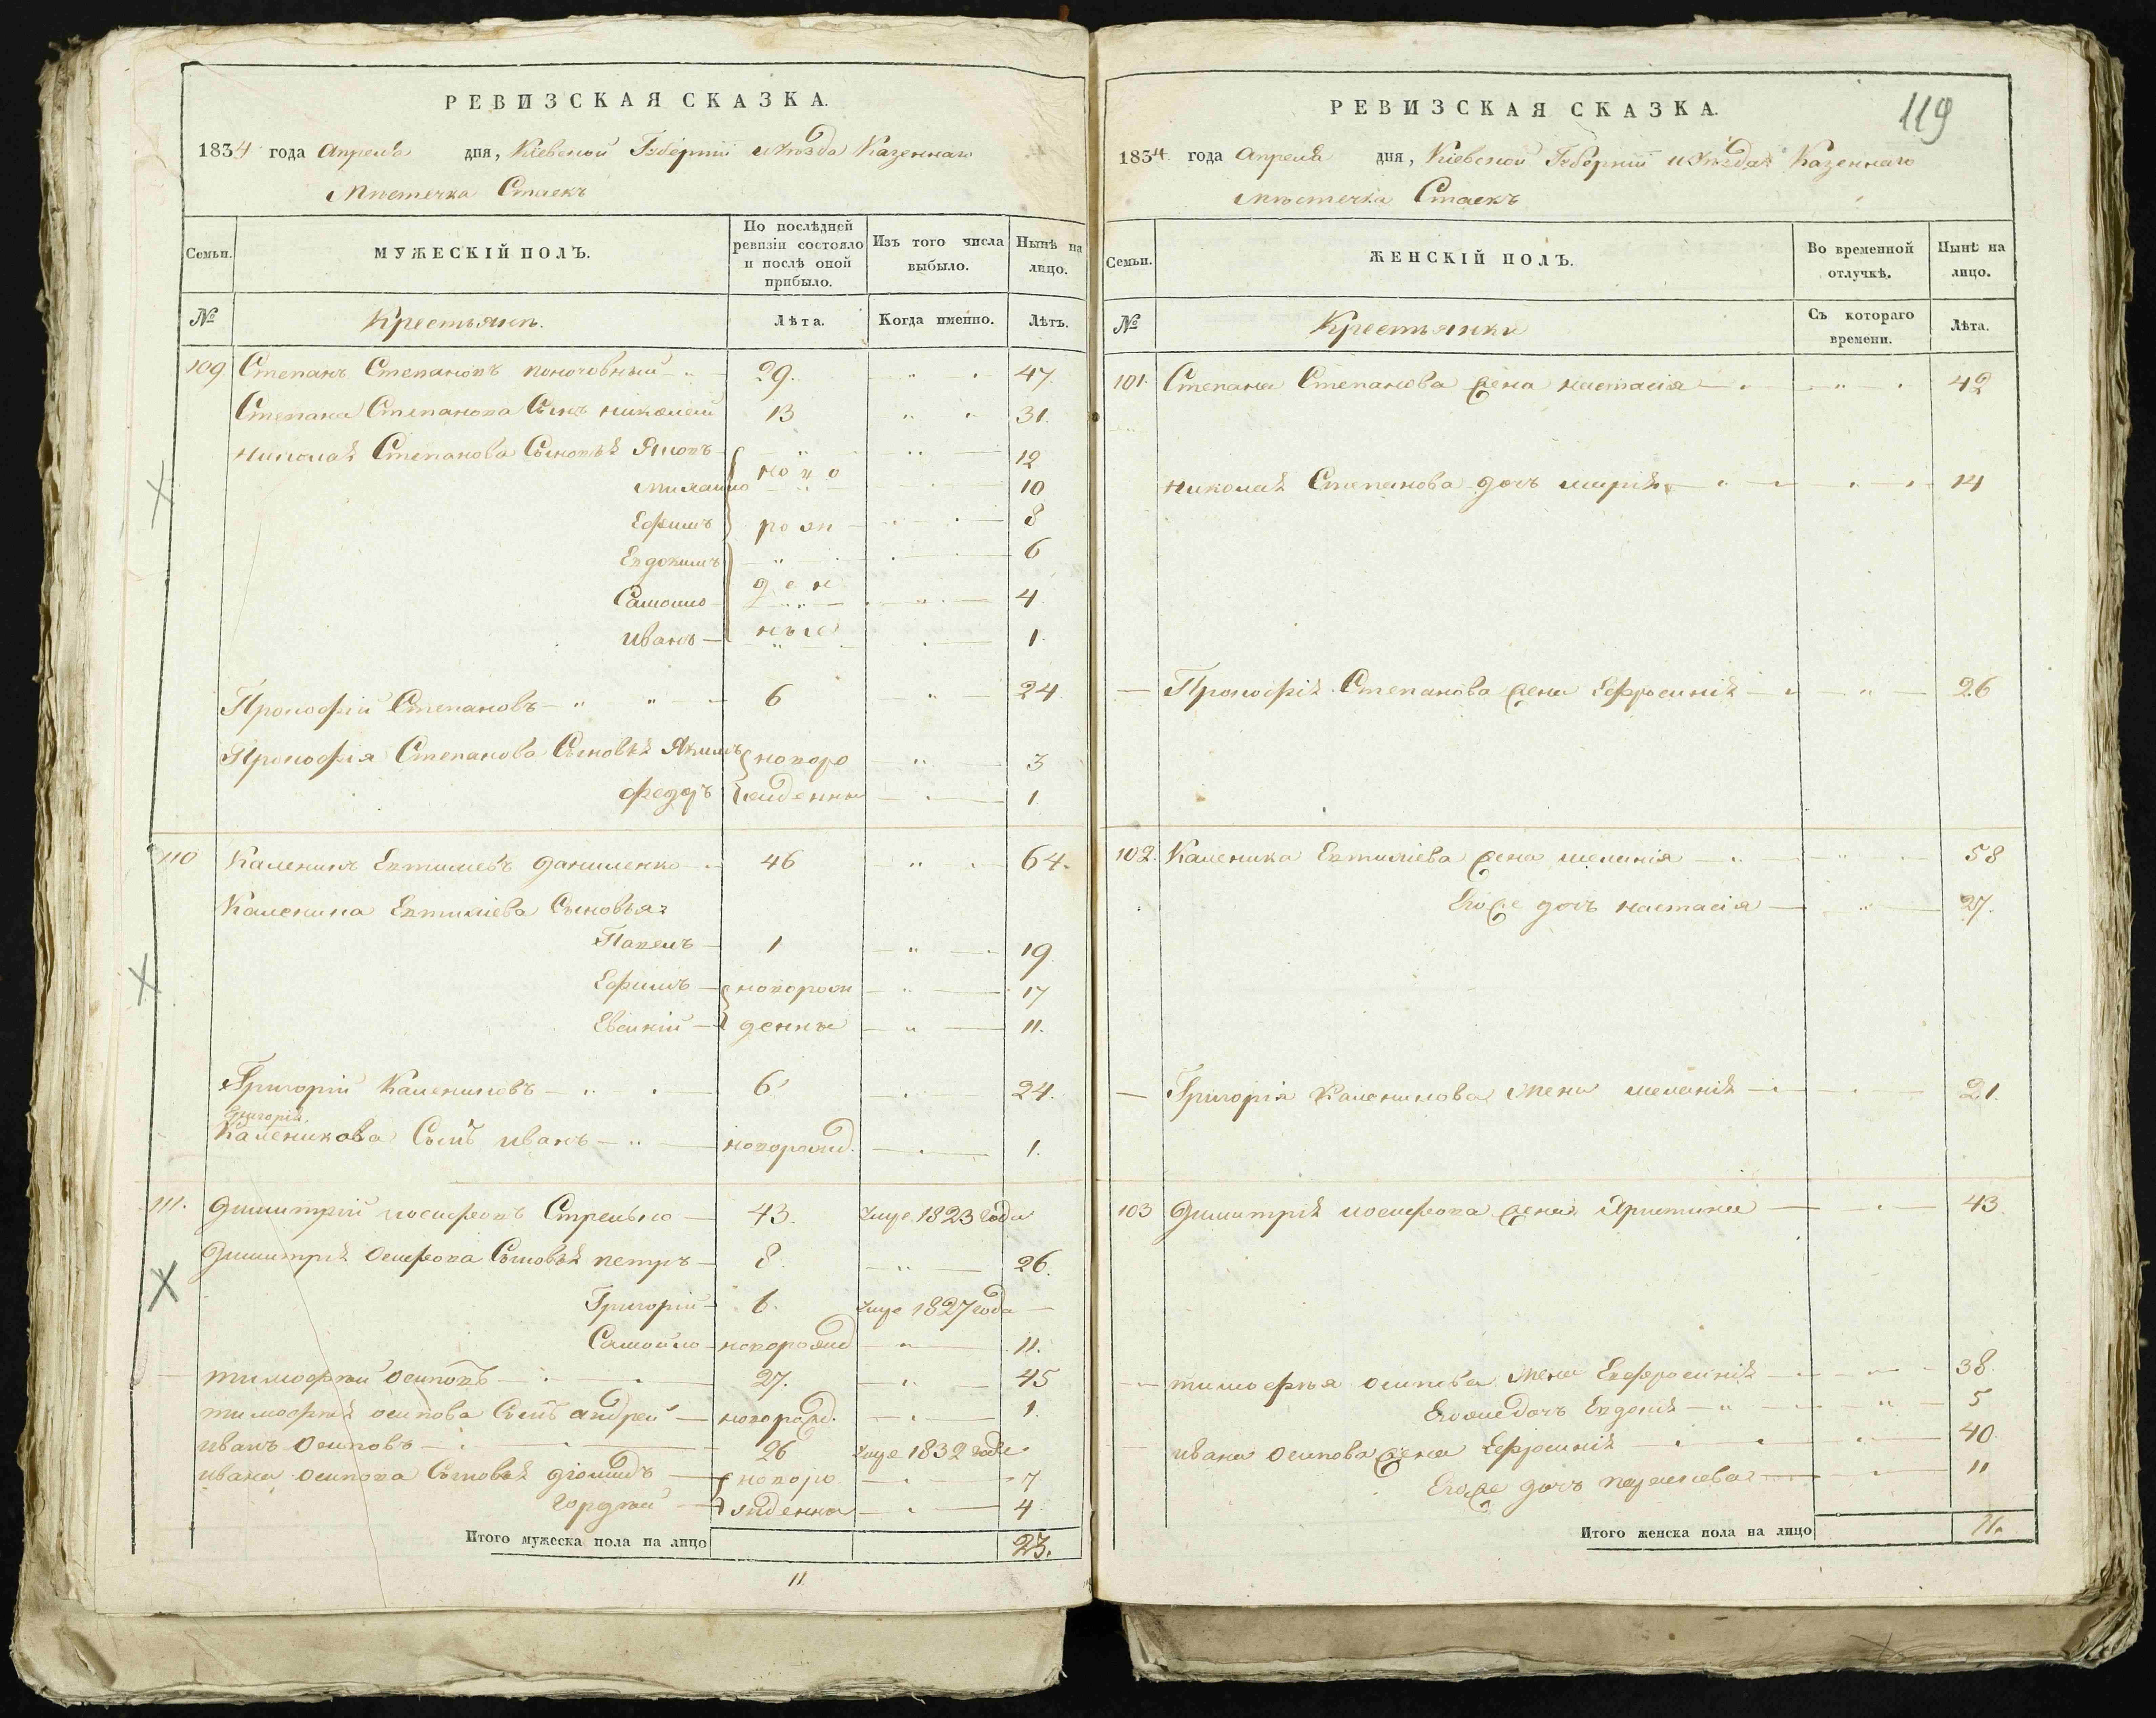 РЕВИЗСКАЯ СКАЗКА.
1834 года Апреля дня, Кіевской Губерніи и Уѣзда Казеннаго
Мѣстечка Стаекъ
Семьи. МУЖЕСКІЙ ПОЛЪ. По послѣдней ревизіи состояло и послѣ оной прибыло. Изъ того числа выбыло. Нынѣ на лицо.
№ Крестьянъ. Лѣта. Когда именно. Лѣтъ.
109. Степанъ Степановъ 29. 47.
Степана Степанова Сынъ николай 13 31.
николаѣ Степанова Сыновьѣ Яковъ 12
михайло ново 10
Ефимъ рож 8
Евдокимъ 6
Самойло ден 4.
Иванъ ные 1.
Прокофій Степановъ 6 24.
Прокофія Степанова Сыновьѣ Якимъ новоро 3
федоръ жденны 1.
110 Каленикъ Евтиміевъ даниленко 46 64.
Каленика Евтиміева Сыновья:
Павелъ 1 19.
Ефимъ новорож 17
Евсикій денны 11.
Григорій Калениковъ 6 24.
Григорія
Каленикова Сынъ иванъ новорожд. 1.
111. Димитрій иосифовъ Стрелько 43. Умре 1823 года
Димитрѣ Осифова Сыновьѣ петръ 8. 26.
Григорій 6. Умре 1827 года
Самойло новорожд 11.
тимофѣй Осиповъ 27. 45
тимофѣѣ осипова Сынъ андрей новорожд. 1.
иванъ Осиповъ 26 Умре 1832 года
ивана осипова Сыновьѣ діомидъ новоро 7
Гордѣй жденна 4
Итого мужеска пола на лицо 23.
11
119
РЕВИЗСКАЯ СКАЗКА.
1834 года Апреля дня, Кіевской Губерніи и Уѣзда Казеннаго
мѣстечка Стаекъ
Семьи. ЖЕНСКІЙ ПОЛЪ. Во временной отлучкѣ. Нынѣ на лицо.
№ Крестьянки Съ котораго времени. Лѣта.
101. Степана Степанова жена настасія 42
николаѣ Степанова дочь маріѣ 14
Прокофіѣ Степанова жена Ефросиніѣ 26
102. Каленика Евтиміева жена меланія 58
Егоже дочь настасія 27.
Григорія Каленикова жена меланіѣ 21.
103 Димитріѣ иосифова жена Христина 43.
тимофѣя осипова жена Евфросиніѣ 38.
Егоже дочь Евдокіѣ 5
ивана осипова жена Ефросиніѣ 40.
Егоже дочь 11
Итого женска пола на лицо 11.